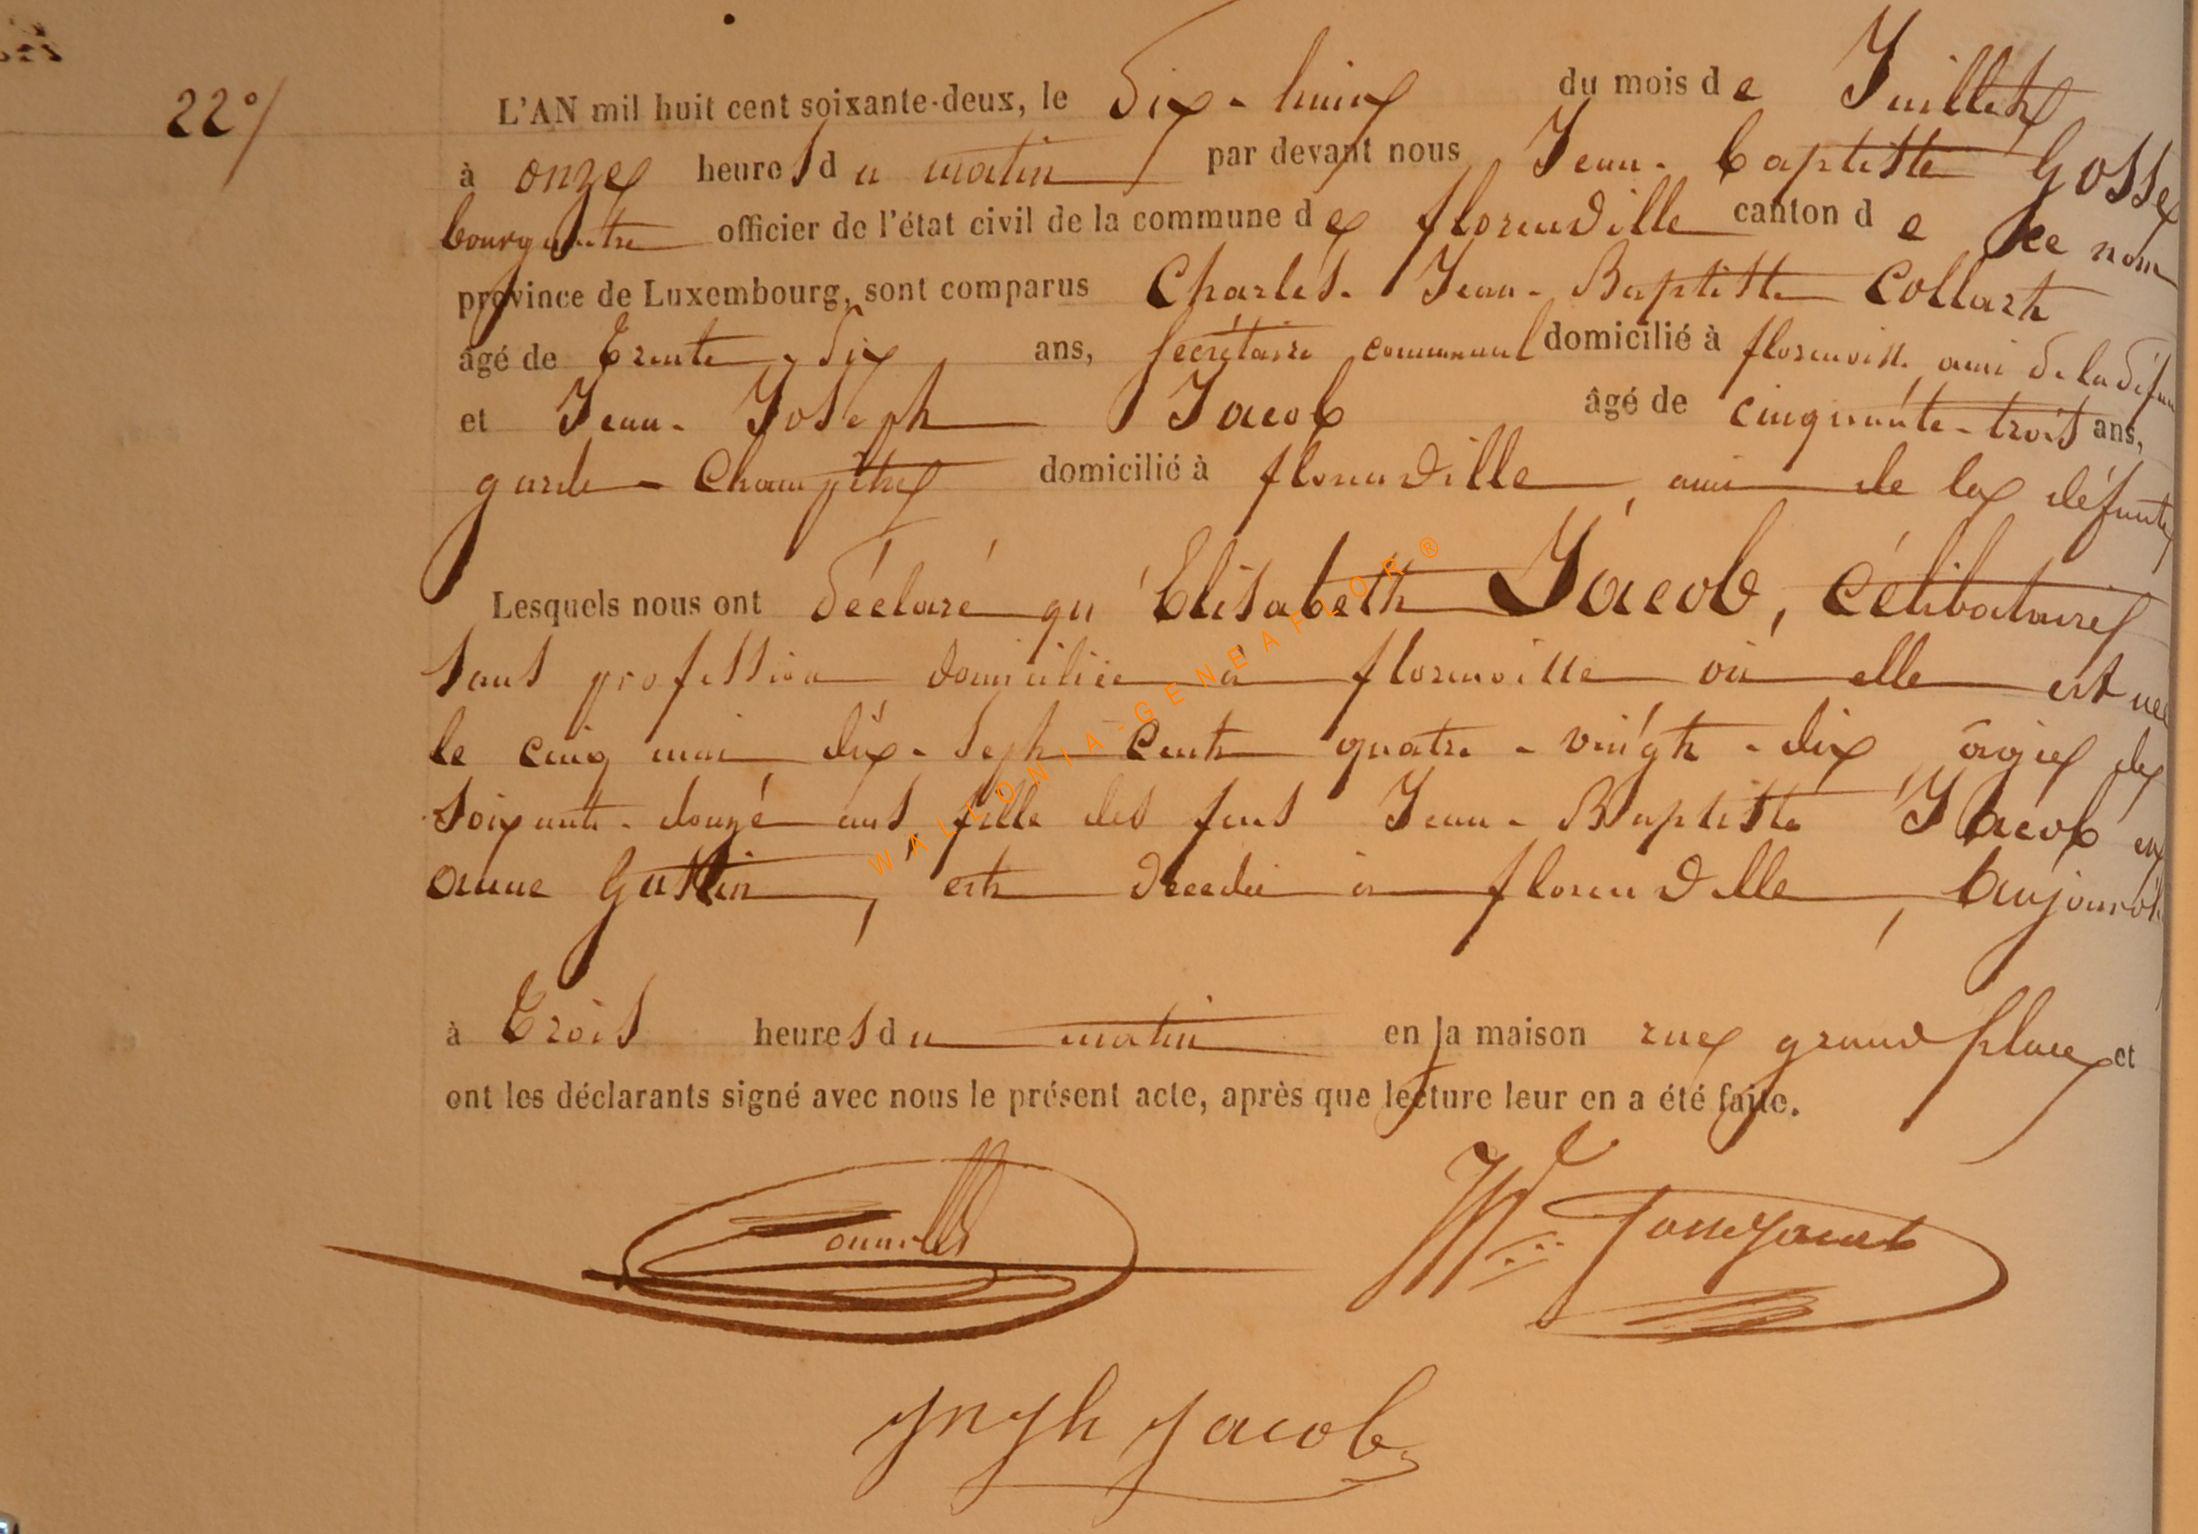 22°/
L'AN mil huit cent soixante-deux, le dix-huit du mois de Juillet
à onze heures du matin par devant nous Jean-baptiste Gosse
bourgmestre officier de l'état civil de la commune de florenville canton de ce nom
province de Luxembourg, sont comparus Charles-Jean-Baptiste Collart
âgé de trente-six ans, secrétaire communal domicilié à florenville, ami de la défun
et Jean-Joseph Jacob âgé de cinquante-trois ans,
garde-champêtre domicilié à florenville, ami de la défunte
Lesquels nous ont déclaré qu'Elisabeth Jacob, célibataire
sans profession domiciliée à florenville où elle est née
le cinq mai dix-sept cent quatre-vingt-dix, agée de
soixante-douze ans fille des feus Jean-Baptiste Jacob et
anne, est décédée à florenville, aujourd'h
à trois heures du matin en la maison rue grand place et
ont les déclarants signé avec nous le présent acte, après que lecture leur en a été faite.
Jacob
WALLONIA-GENEAFLOR®